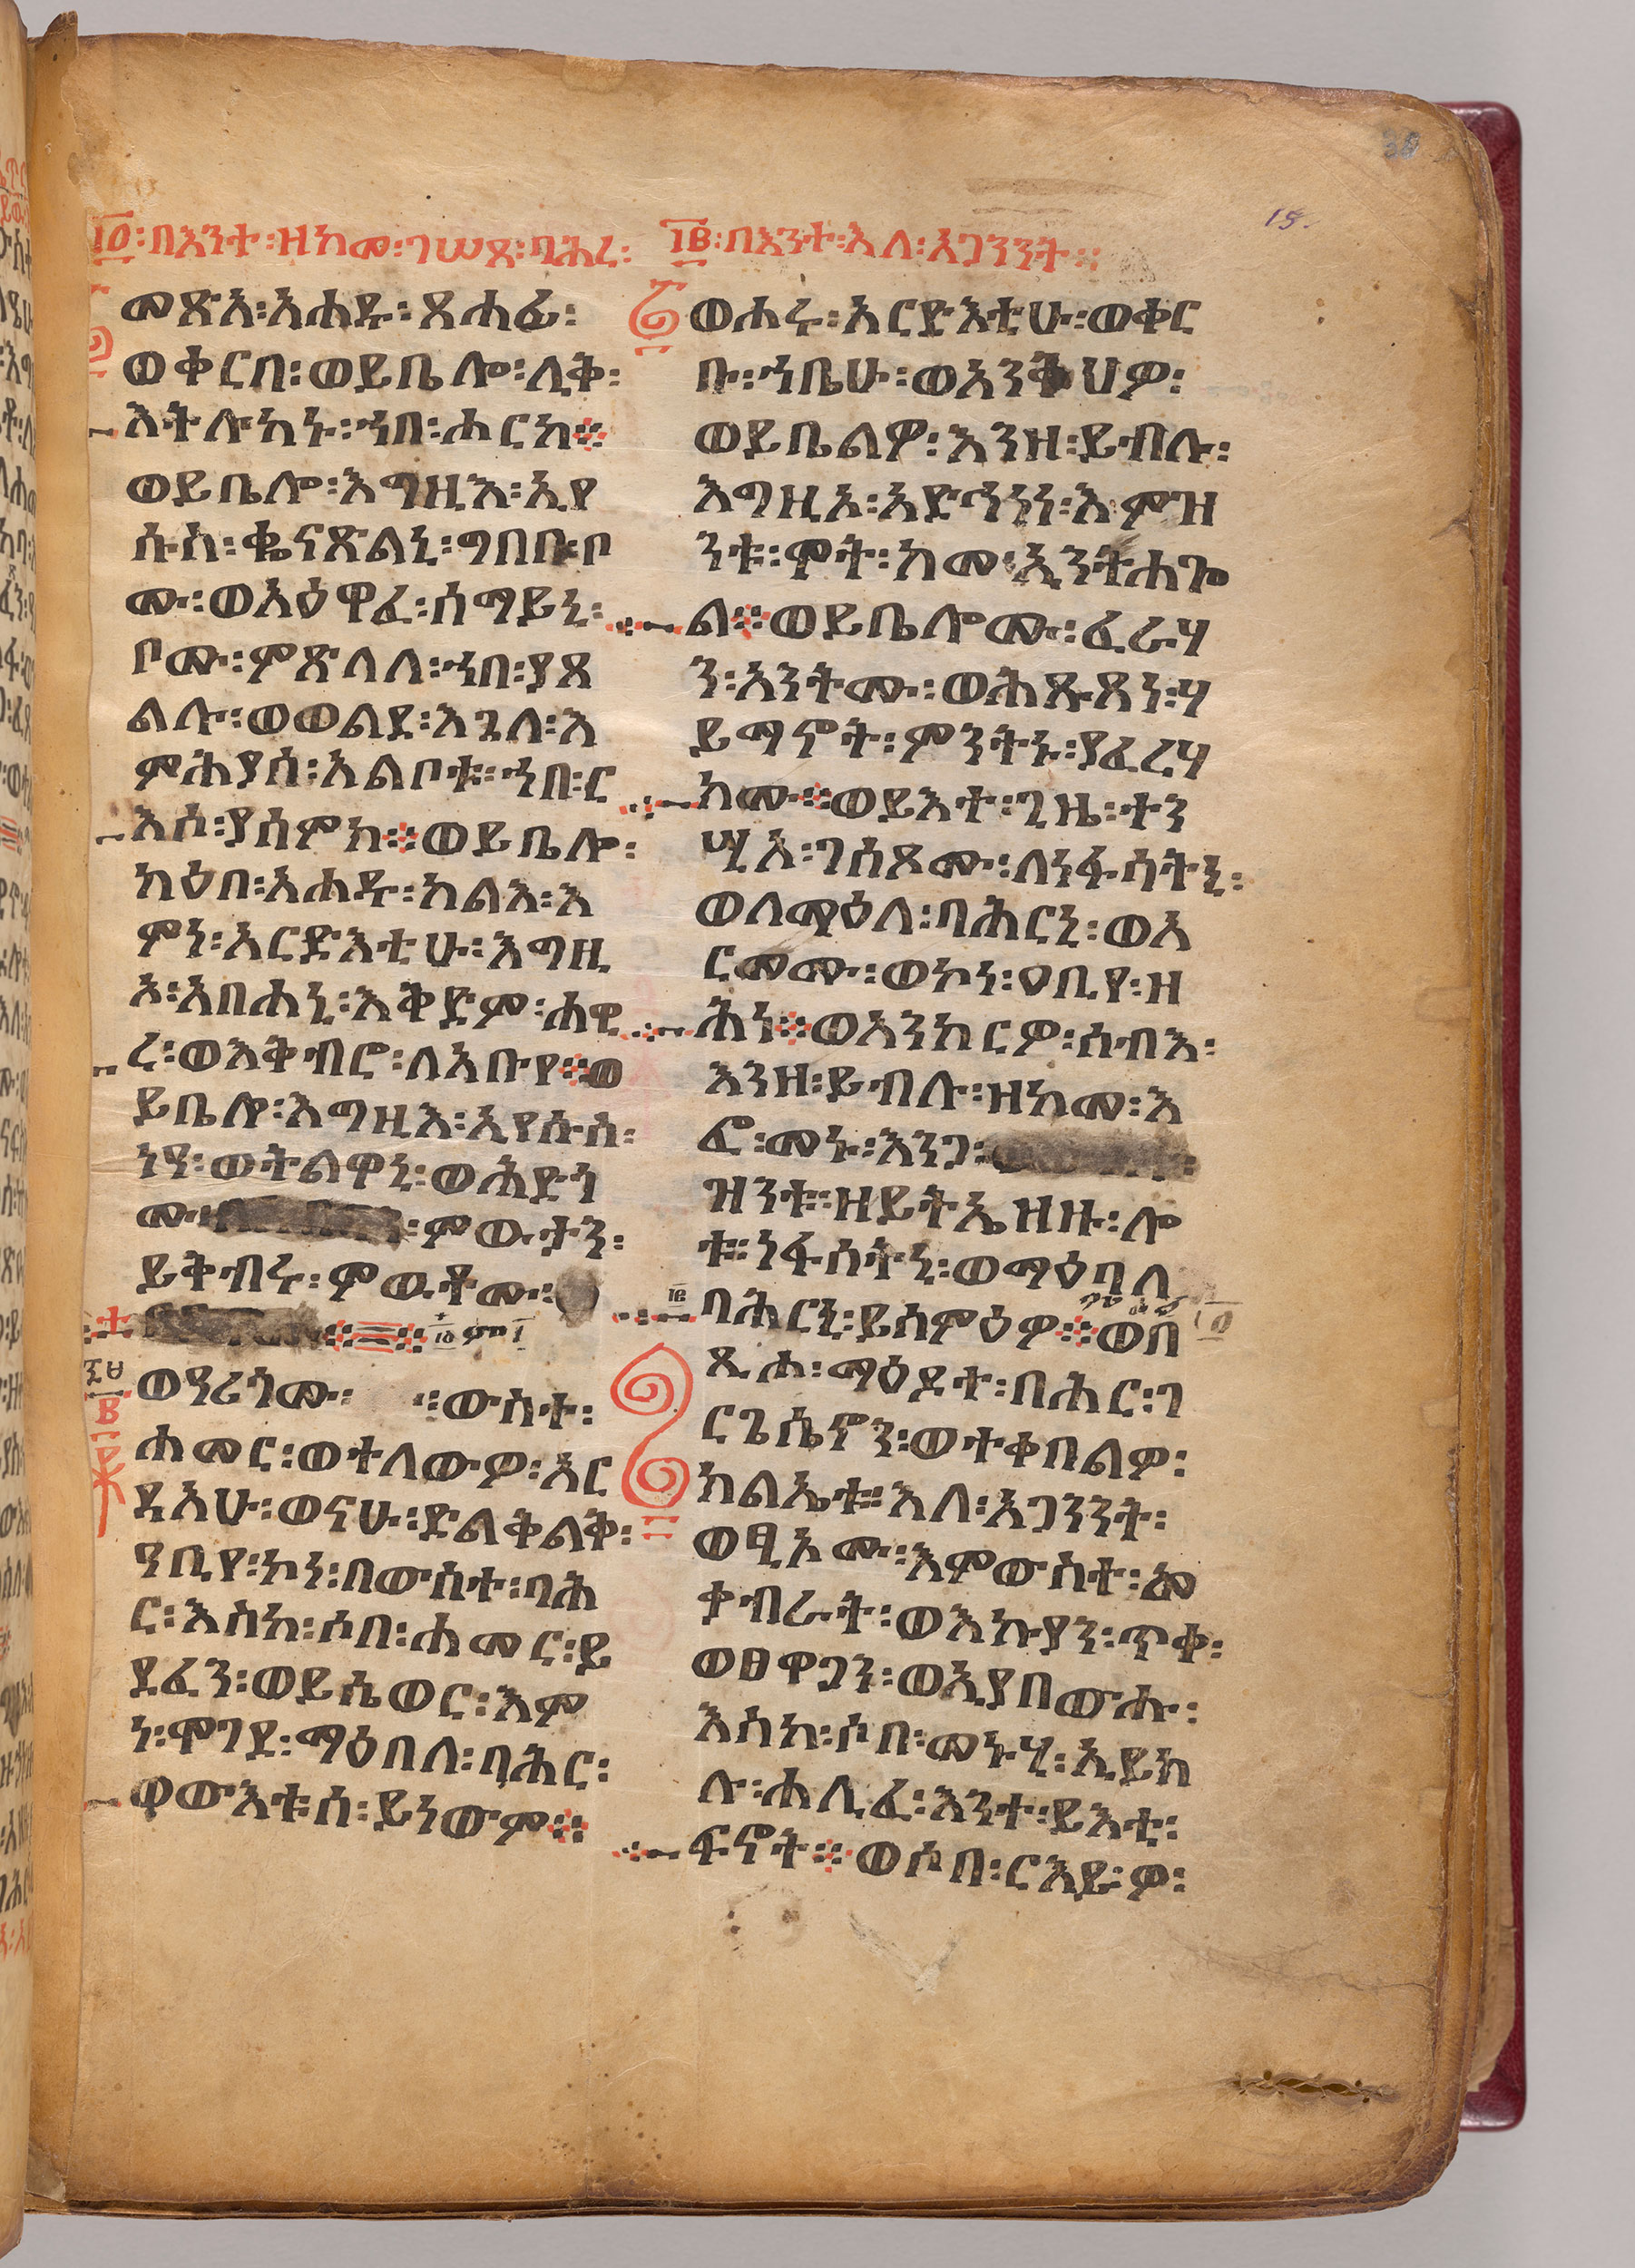 ፲፬፡በእንተ፡ዘከመ፡ገሠጸ፡ባሕረ፡
መጽአ፡አሐዱ፡ጸሐፊ፡
ወቀርበ፡ወይቤሎ፡ሊቅ፡
እትሉከኑ፡ኀበ፡ሐርከ፨
ወይቤሎ፡እግዚእ፡ኢየ
ሱስ፡ቈናጽልኒ፡ግበበ፡ቦ
ሙ፡ወአዕዋፈ፡ሰማይኒ፡
ቦሙ፡ምጽላለ፡ኀበ፡ያጸ
ልሉ፡ወወልደ፡እጓለ፡እ
ምሕያሰ፡አልቦቱ፡ኀበ፡ር
እሶ፡ያሰምክ፨ወይቤሎ፡
ካዕበ፡አሐዱ፡ካልእ፡እ
ምነ፡አርድእቲሁ፡እግዚ
ኦ፡አብሐኒ፡እቅድም፡ሐዊ
ረ፡ወእቅብሮ፡ለአቡየ፨ወ
ይቤሎ፡እግዚእ፡ኢየሱስ፡
ነዓ፡ወትልዋኒ፡ወሕድጎ
ሙ፡ምውታን፡
ይቅብሩ፡ምዉቶሙ፡
ወዓሪጎሙ፡ ፡ውስተ፡
ሐመር፡ወተለውዎ፡አር
ዳእሁ፡ወናሁ፡ድልቅልቅ፡
ዓቢየ፡ኮነ፡በውስተ፡ባሕ
ር፡እስከ፡ሶበ፡ሐመር፡ይ
ደፈን፡ወይሴወር፡እም
ነ፡ሞገደ፡ማዕበለ፡ባሕር፡
ወውእቱሰ፡ይነውም፨
፲፪፡በእንተ፡እለ፡አጋንንት፨
ወሐሩ፡አርድእቲሁ፡ወቀር
ቡ፡ኀቤሁ፡ወአንቅህዎ፡
ወይቤልዎ፡እንዘ፡ይብሉ፡
እግዚኦ፡አድኅነነ፡እምዝ
ንቱ፡ሞት፡ከመ፡ኢንትሐጐ
ል፨ወይቤሎሙ፡ፈራሃ
ን፡አንትሙ፡ወሕጹጸነ፡ሃ
ይማኖት፡ምንትኑ፡ያፈርሃ
ክሙ፨ወይእተ፡ጊዜ፡ተን
ሢአ፡ገሰጾሙ፡ለነፋሳትኒ፡
ወለማዕለ፡ባሕርኒ፡ወአ
ርመሙ፡ወኮነ፡ዐቢየ፡ዘ
ሕነ፨ወአንከርዎ፡ሰብእ፡
እንዘ፡ይብሉ፡ዘከመ፡እ
ፎ፡መኑ፡እንጋ፡
ዝንቱ፡ዘይትኤዘዙ፡ሎ
ቱ፡ነፋሳትኒ፡ወማዕበለ
ባሕርኒ፡ይሰምዕዎ፨ወበ
ጺሖ፡ማዕዶተ፡በሕር፡ገ
ርጌሴኖን፡ወተቀበልዎ፡
ክልኤቱ፡እለ፡አጋንንት፡
ወፂኦሙ፡እምውስተ፡መ
ቃብራት፡ወእኩያን፡ጥቀ፡
ወፀዋጋን፡ወኢያበውሑ፡
እስከ፡ሶበ፡መኑሂ፡ኢይክ
ሉ፡ሐሊፈ፡እንተ፡ይእቲ፡
ፍኖት፨ወሶበ፡ርእይዎ፡